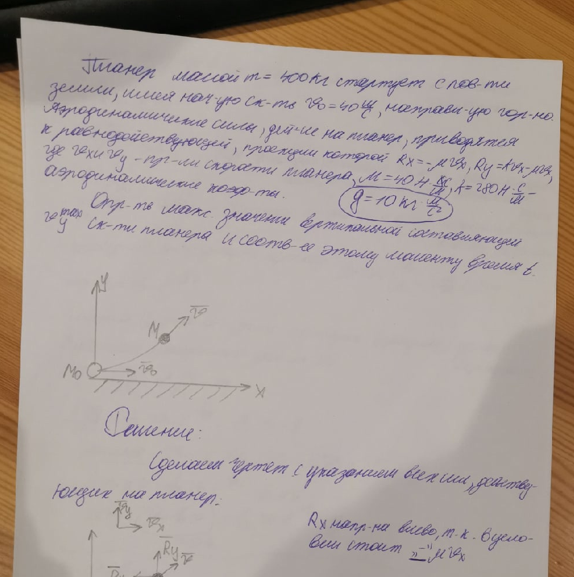 Планер массой m = 400 кг стартует с пов-ти
земли, имея нач-ую ск-ть v̅₀ = 40 м/с, направл-ую гор-но.
Аэродинамические силы, дей-ие на планер, приводятся
к равнодействующей, проекции которой Rx = -μvx, Ry = Avx - μvy,
где vx и vy - пр-ии скорости планера, μ = 40 Н, A = 280 Н·с/м -
аэродинамические коэф-ты. g = 10
Опр-ть макс. значении вертикальной составляющей
vy max ск-ти планера и соотв-ее этому моменту время t.
y
v̅
M
M₀
v̅₀
x
Решение:
Сделаем чертеж с указанием всех сил, действу-
ющих на планер.
Rx напр-на влево, т.к. в усло-
вии стоит "-" μvx
v̅y
v̅x
R̅y
v̅